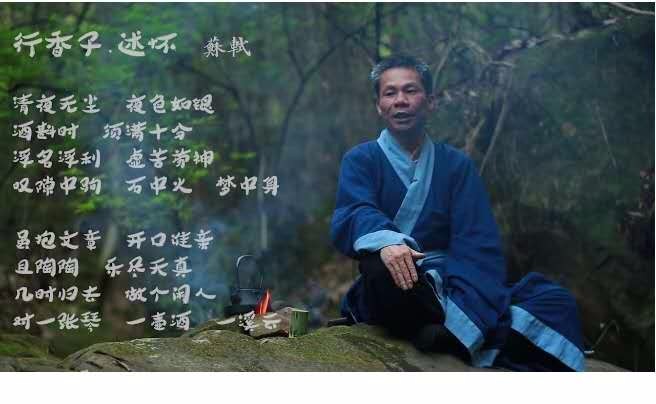 行香子.述怀 蘇軾
清夜无尘 夜色如银
酒斟时 须满十分
浮名浮利 虚苦劳神
叹隙中驹 石中火 梦中身
虽抱文章 开口谁亲
且陶陶 乐尽天真
几时归去 做个闲人
对一张琴 一壶酒 一溪云